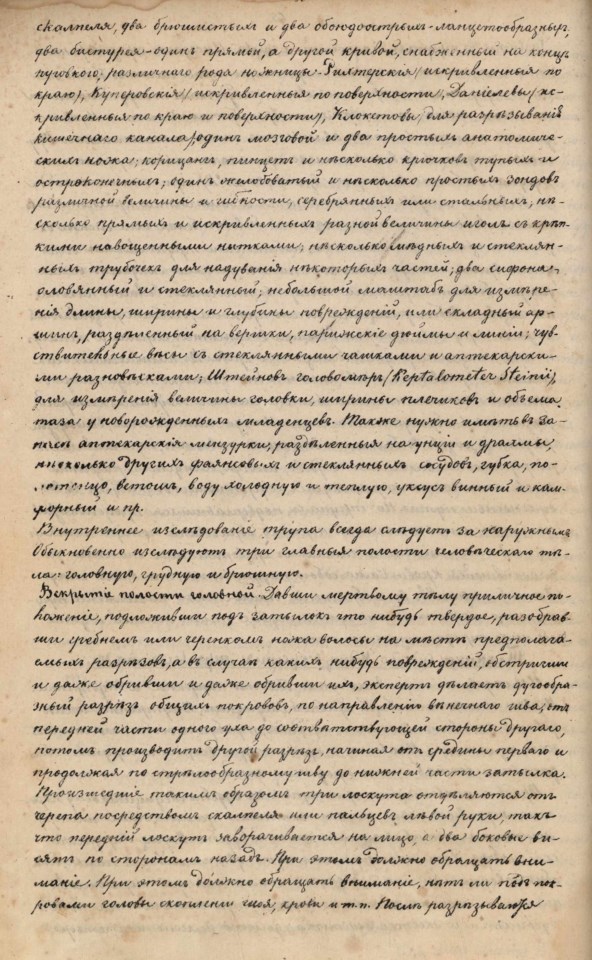 скальпеля, два брюшистыхъ и два обоюдоострыхъ-ланцетообразныхъ,
два бистурея-одинъ прямой, а другой кривой, снабженный на концѣ
пуговкою, различнаго рода ножницы-Рихтерскія (искривленныя по
краю), Куперовскія (искривленныя по поверхности), Даніелевы (ис-
кривленныя по краю и поверхности), Клокетовы (для разрѣзыванія
кишечнаго канала), одинъ мозговой и два простыхъ анатомиче-
скихъ ножа; корнцангъ, пинцетъ и нѣсколько крючковъ тупыхъ и
остроконечныхъ; одинъ желобоватый и нѣсколько простыхъ зондовъ
различной величины и гибкости, серебрянныхъ или стальныхъ, нѣ-
сколько прямыхъ и искривленныхъ разной величины иголъ съ крѣп-
кими навощенными нитками; нѣсколько мѣдныхъ и стеклян-
ныхъ трубочекъ для надуванія нѣкоторыхъ частей; два сифона-
оловянный и стеклянный; небольшой маштабъ для измѣре-
нія длины, ширины и глубины поврежденій, или складный ар-
шинъ, раздѣленный на вершки, парижскіе дюймы и линіи; чув-
ствительные вѣсы съ стеклянными чашками и аптекарски-
ми разновѣсками; Штейновъ головомѣръ (Keptalometer Steinii),
для измѣренія величины головки, ширины плечиковъ и объема
таза у новорожденныхъ младенцевъ. Также нужно имѣть въ за-
пасѣ аптекарскія мензурки, раздѣленныя на унціи и драхмы,
нѣсколько другихъ фаянсовыхъ и стеклянныхъ сосудовъ, губка, по-
лотенцо, ветошь, воду холодную и теплую, уксусъ винный и кам-
форный и пр.
Внутреннее изслѣдованіе трупа всегда слѣдуетъ за наружнымъ
Обыкновенно изслѣдуютъ три главныя полости человѣческаго тѣ-
ла: головную, грудную и брюшную.
Вскрытіе полости головной. Давши мертвому тѣлу приличное по-
ложеніе, подложивши подъ затылокъ что нибудь твердое, разобрав-
ши гребнемъ или черенкомъ ножа волосы на мѣстѣ предполага-
емыхъ разрѣзовъ, а въ случаѣ какихъ нибудь поврежденій, обстригши
и даже обривши и даже обривши ихъ, экспертъ дѣлаетъ дугообра-
зный разрѣзъ общихъ покрововъ, по направленію вѣнечнаго шва, отъ
передней части одного уха до соотвѣтствующей стороны другаго,
потомъ производитъ другой разрѣзъ, начиная отъ средины перваго и
продолжая по стрѣлообразному шву до нижней части затылка.
Происшедшіе такимъ образомъ три лоскута отдѣляются отъ
черепа посредствомъ скальпеля или пальцевъ лѣвой руки, такъ
что передній лоскутъ заворачивается на лицо, а два боковые ви-
сятъ по сторонамъ назадъ. При этомъ должно обращать вни-
маніе. При этомъ должно обращать вниманіе, нѣтъ ли подъ пок-
ровами головы скопленія гноя, крови и т.п. Послѣ разрѣзываются